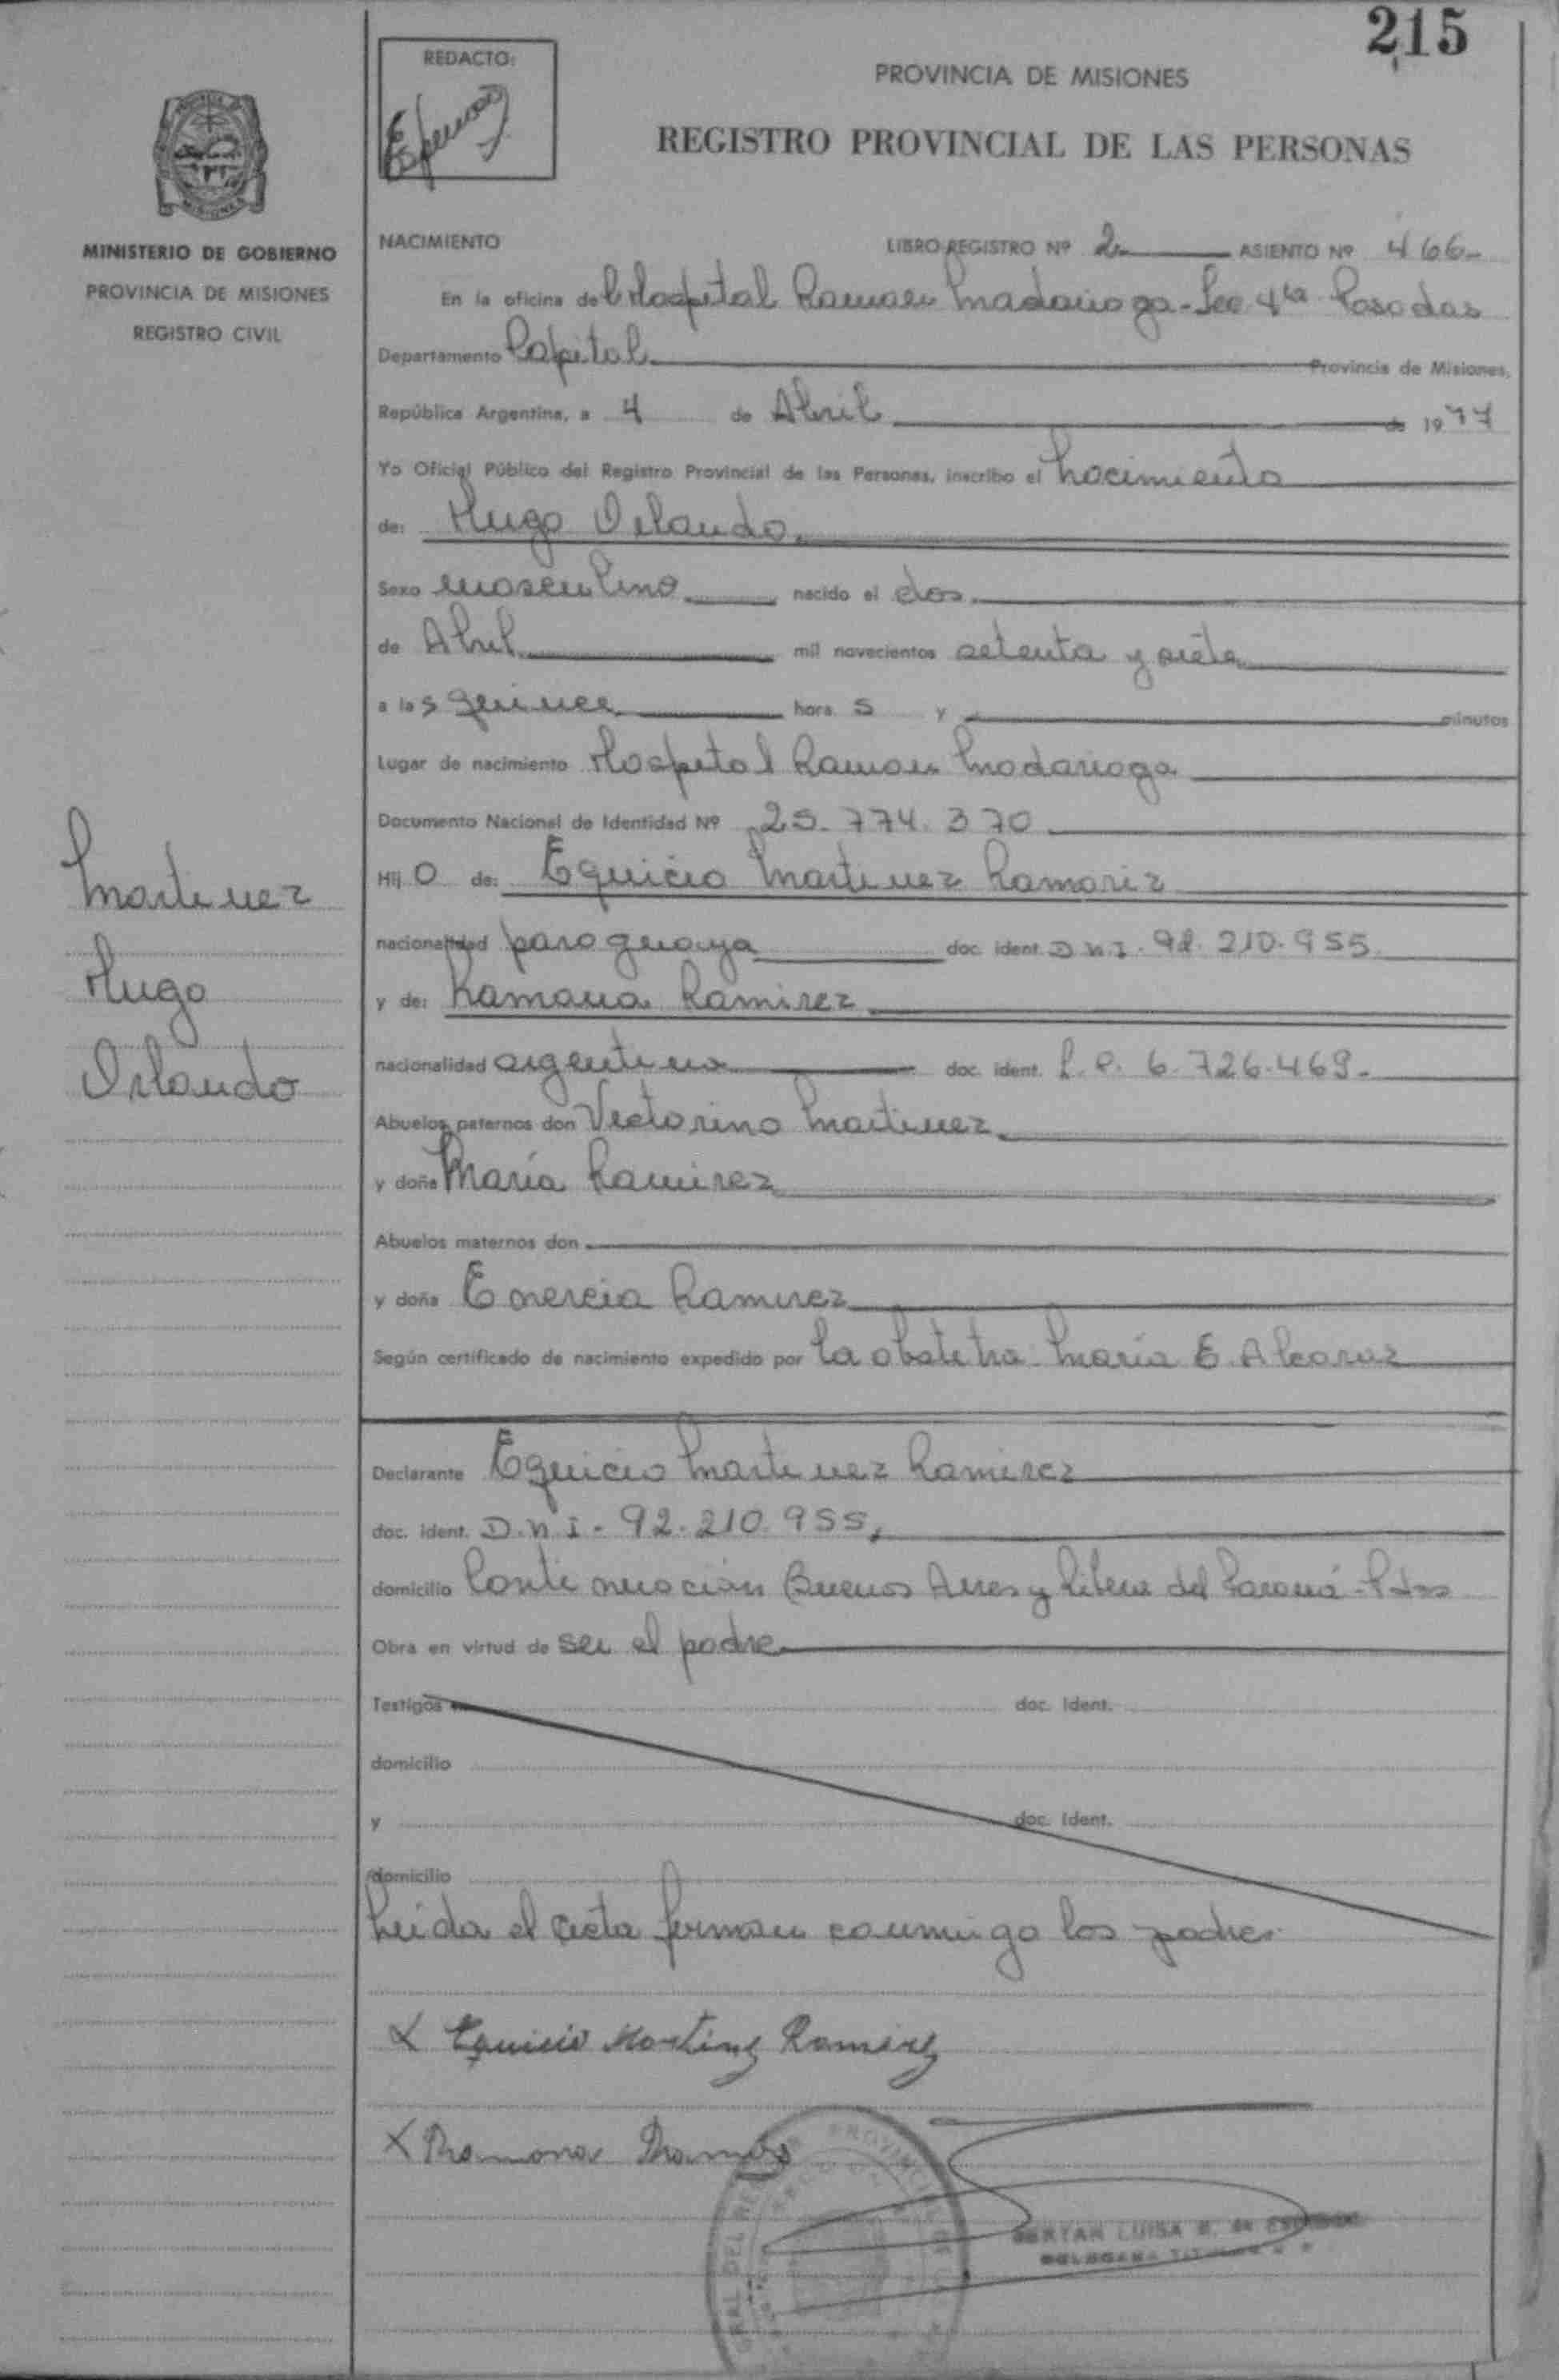 215
REDACTO:
PROVINCIA DE MISIONES
REGISTRO PROVINCIAL DE LAS PERSONAS
MISIONES
MINISTERIO DE GOBIERNO
PROVINCIA DE MISIONES
REGISTRO CIVIL
NACIMIENTO LIBRO REGISTRO Nº 2 ASIENTO Nº 466-
En la oficina del Hospital Ramon Madariaga - Sec 4ta Posadas
Departamento Capital Provincia de Misiones,
República Argentina, a 4 de Abril de 1977
Yo Oficial Público del Registro Provincial de las Personas, inscribo el nacimiento
de: Hugo Orlando
Sexo masculino nacido el dos
de Abril mil novecientos setenta y siete
a las quince horas y minutos
Lugar de nacimiento Hospital Ramon Madariaga
Documento Nacional de Identidad Nº 25.774.370
Hijo de: Eguicio Martinez Ramariz
nacionalidad paraguaya doc. ident. D.N.I. 92.210.955
y de: Ramona Ramirez
nacionalidad argentina doc. ident. L.C. 6.726.469.
Abuelos paternos don Victorino Martinez
y doña María Ramirez
Abuelos maternos don
y doña Enercia Ramirez
Según certificado de nacimiento expedido por la obstetra María E. Alcaraz
Martinez
Hugo
Orlando
Declarante Eguicio Martinez Ramirez
doc. ident. D.N.I - 92.210.955,
domicilio Continuación Buenos Aires y Ribera del Paraná - Pdas
Obra en virtud de ser el padre
Testigos doc. Ident.
domicilio
y doc. Ident.
domicilio
Leida el acta firman conmigo los padres
X Eguicio Martinez Ramirez
X Ramona Ramirez
LUISA